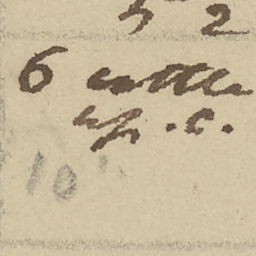 5 2
6 cattle
up. c.
10